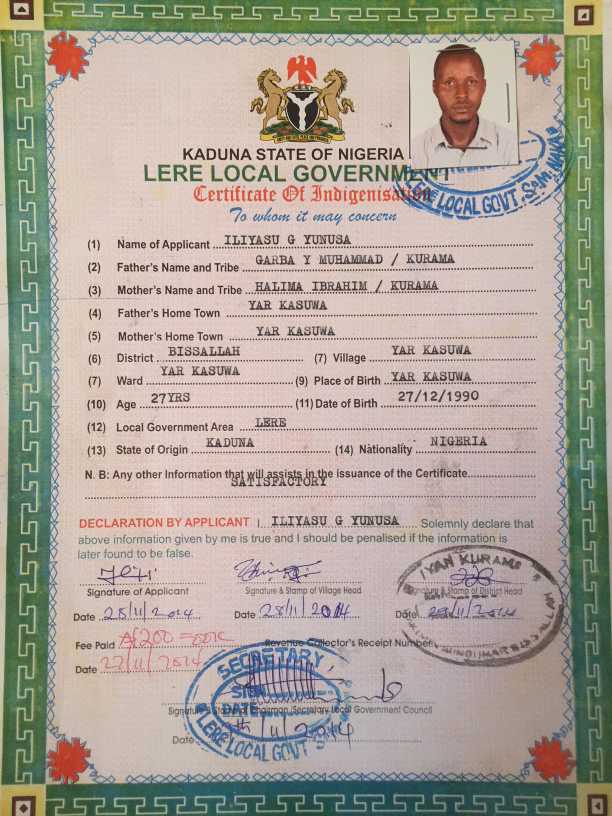 KADUNA STATE OF NIGERIA
LERE LOCAL GOVERNMENT
Certificate Of Indigenisation
To whom it may concern
LOCAL GOVT. SAM
(1) Name of Applicant ILIYASU G YUNUSA
(2) Father's Name and Tribe GARBA Y MUHAMMAD / KURAMA
(3) Mother's Name and Tribe HALIMA IBRAHIM / KURAMA
(4) Father's Home Town YAR KASUWA
(5) Mother's Home Town YAR KASUWA
(6) District BISSALLAH (7) Village YAR KASUWA
(7) Ward YAR KASUWA (9) Place of Birth YAR KASUWA
(10) Age 27YRS (11) Date of Birth 27/12/1990
(12) Local Government Area LERE
(13) State of Origin KADUNA (14) Nationality NIGERIA
N. B: Any other Information that will assists in the issuance of the Certificate
SATISFACTORY
DECLARATION BY APPLICANT I, ILIYASU G YUNUSA Solemnly declare that
above information given by me is true and I should be penalised if the information is
later found to be false.
IYAN KURAMA
Signature of Applicant Signature & Stamp of Village Head Signature & Stamp of District Head
Date 28/11/2014 Date 28/11/2014 Date 28/11/2014
Fee Paid Revenue Collector's Receipt Number
Date 27/11/2014
SECRETARY
SIGN
DATE
Signature & Stamp of Chairman /Secretary Local Government Council
Date /11/2014
LERE LOCAL GOVT